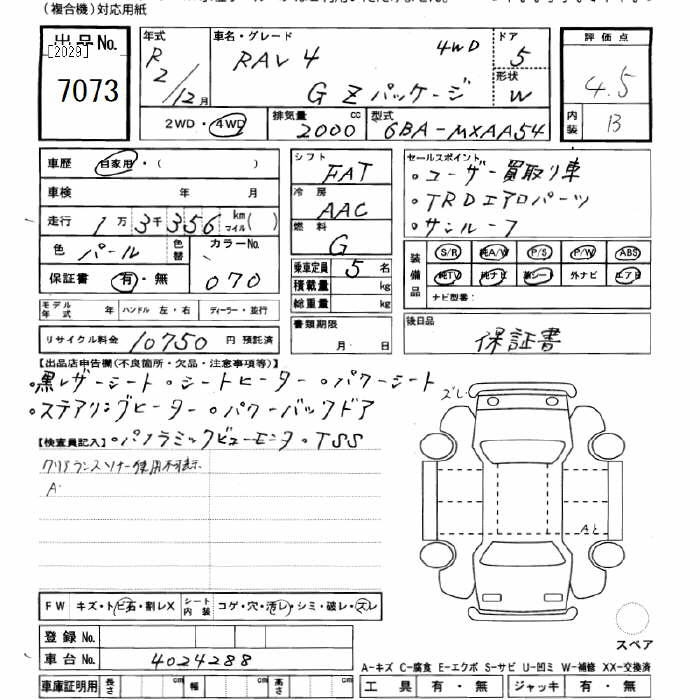 (複合機)対応用紙
出品No.
[2029]
7073
年式
R
2/12月
車名・グレード
RAV4 4WD
G Zパッケージ
ドア
5
形状
W
評価点
4.5
内装
B
2WD・4WD
排気量
2000 cc
型式
6BA-MXAA54
車歴 自家用・( )
車検 年 月
走行 1万3千356 km マイル( )
色 パール 色替
カラーNo.
070
保証書 有・無
モデル年式 年 ハンドル 左・右 ディーラー・並行
リサイクル料金 10750 円 預託済
シフト
FAT
冷房
AAC
燃料
G
乗車定員 5 名
積載量 kg
総重量 kg
書類期限
月 日
セールスポイント
・ユーザー買取り車
・TRDエアロパーツ
・サンルーフ
装備品
S/R 純A/W P/S P/W ABS
純TV 純ナビ 革シート 外ナビ エアB
ナビ型番:
後日品
保証書
【出品店申告欄(不良箇所・欠品・注意事項等)】
・黒レザーシート・シートヒーター・パワーシート
・ステアリングヒーター・パワーバックドア
【検査員記入】・パノラミックビューモニタ・TSS
クリアランスソナー使用不可表示
A
ズレ
A2
FW キズ・トビ石・割レX
シート内装 コゲ・穴・汚レ・シミ・破レ・ズレ
登録No.
車台No. 4024288
車庫証明用 長さ cm 幅 cm 高さ cm
スペア
A-キズ C-腐食 E-エクボ S-サビ U-凹ミ W-補修 XX-交換済
工具 有・無 ジャッキ 有・無